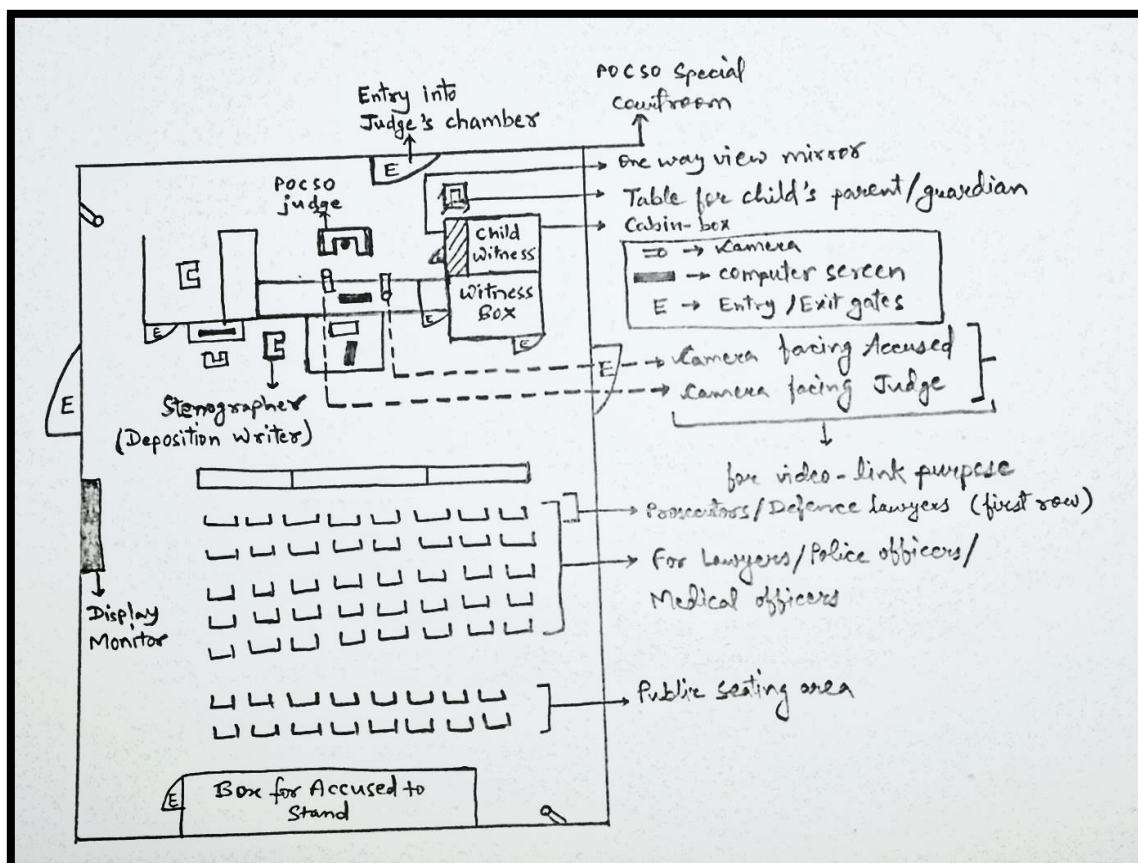 POCSO Special
courtroom
Entry into
Judge's chamber
E
one way view mirror
Table for child's parent/guardian
Cabin-box
POCSO
judge
Child
witness
Witness
Box
E
E
E
→ Camera
→ computer screen
E → Entry/Exit gates
E
E
Camera facing Accused
Camera facing Judge
Stenographer
(Deposition Writer)
for video-link purpose
Prosecutors/Defence lawyers (first row)
For Lawyers/Police officers/
Medical officers
Display
Monitor
Public seating area
E
Box for Accused to
Stand